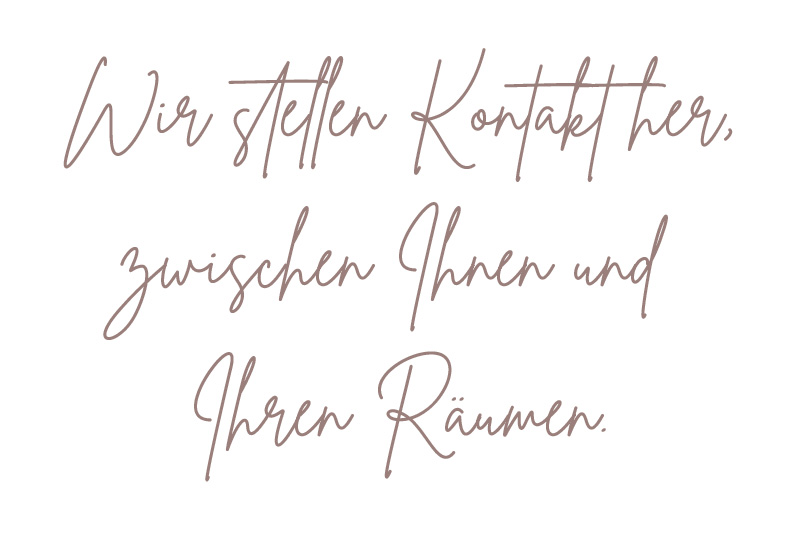 Wir stellen Kontakt her,
zwischen Ihnen und
Ihren Räumen.